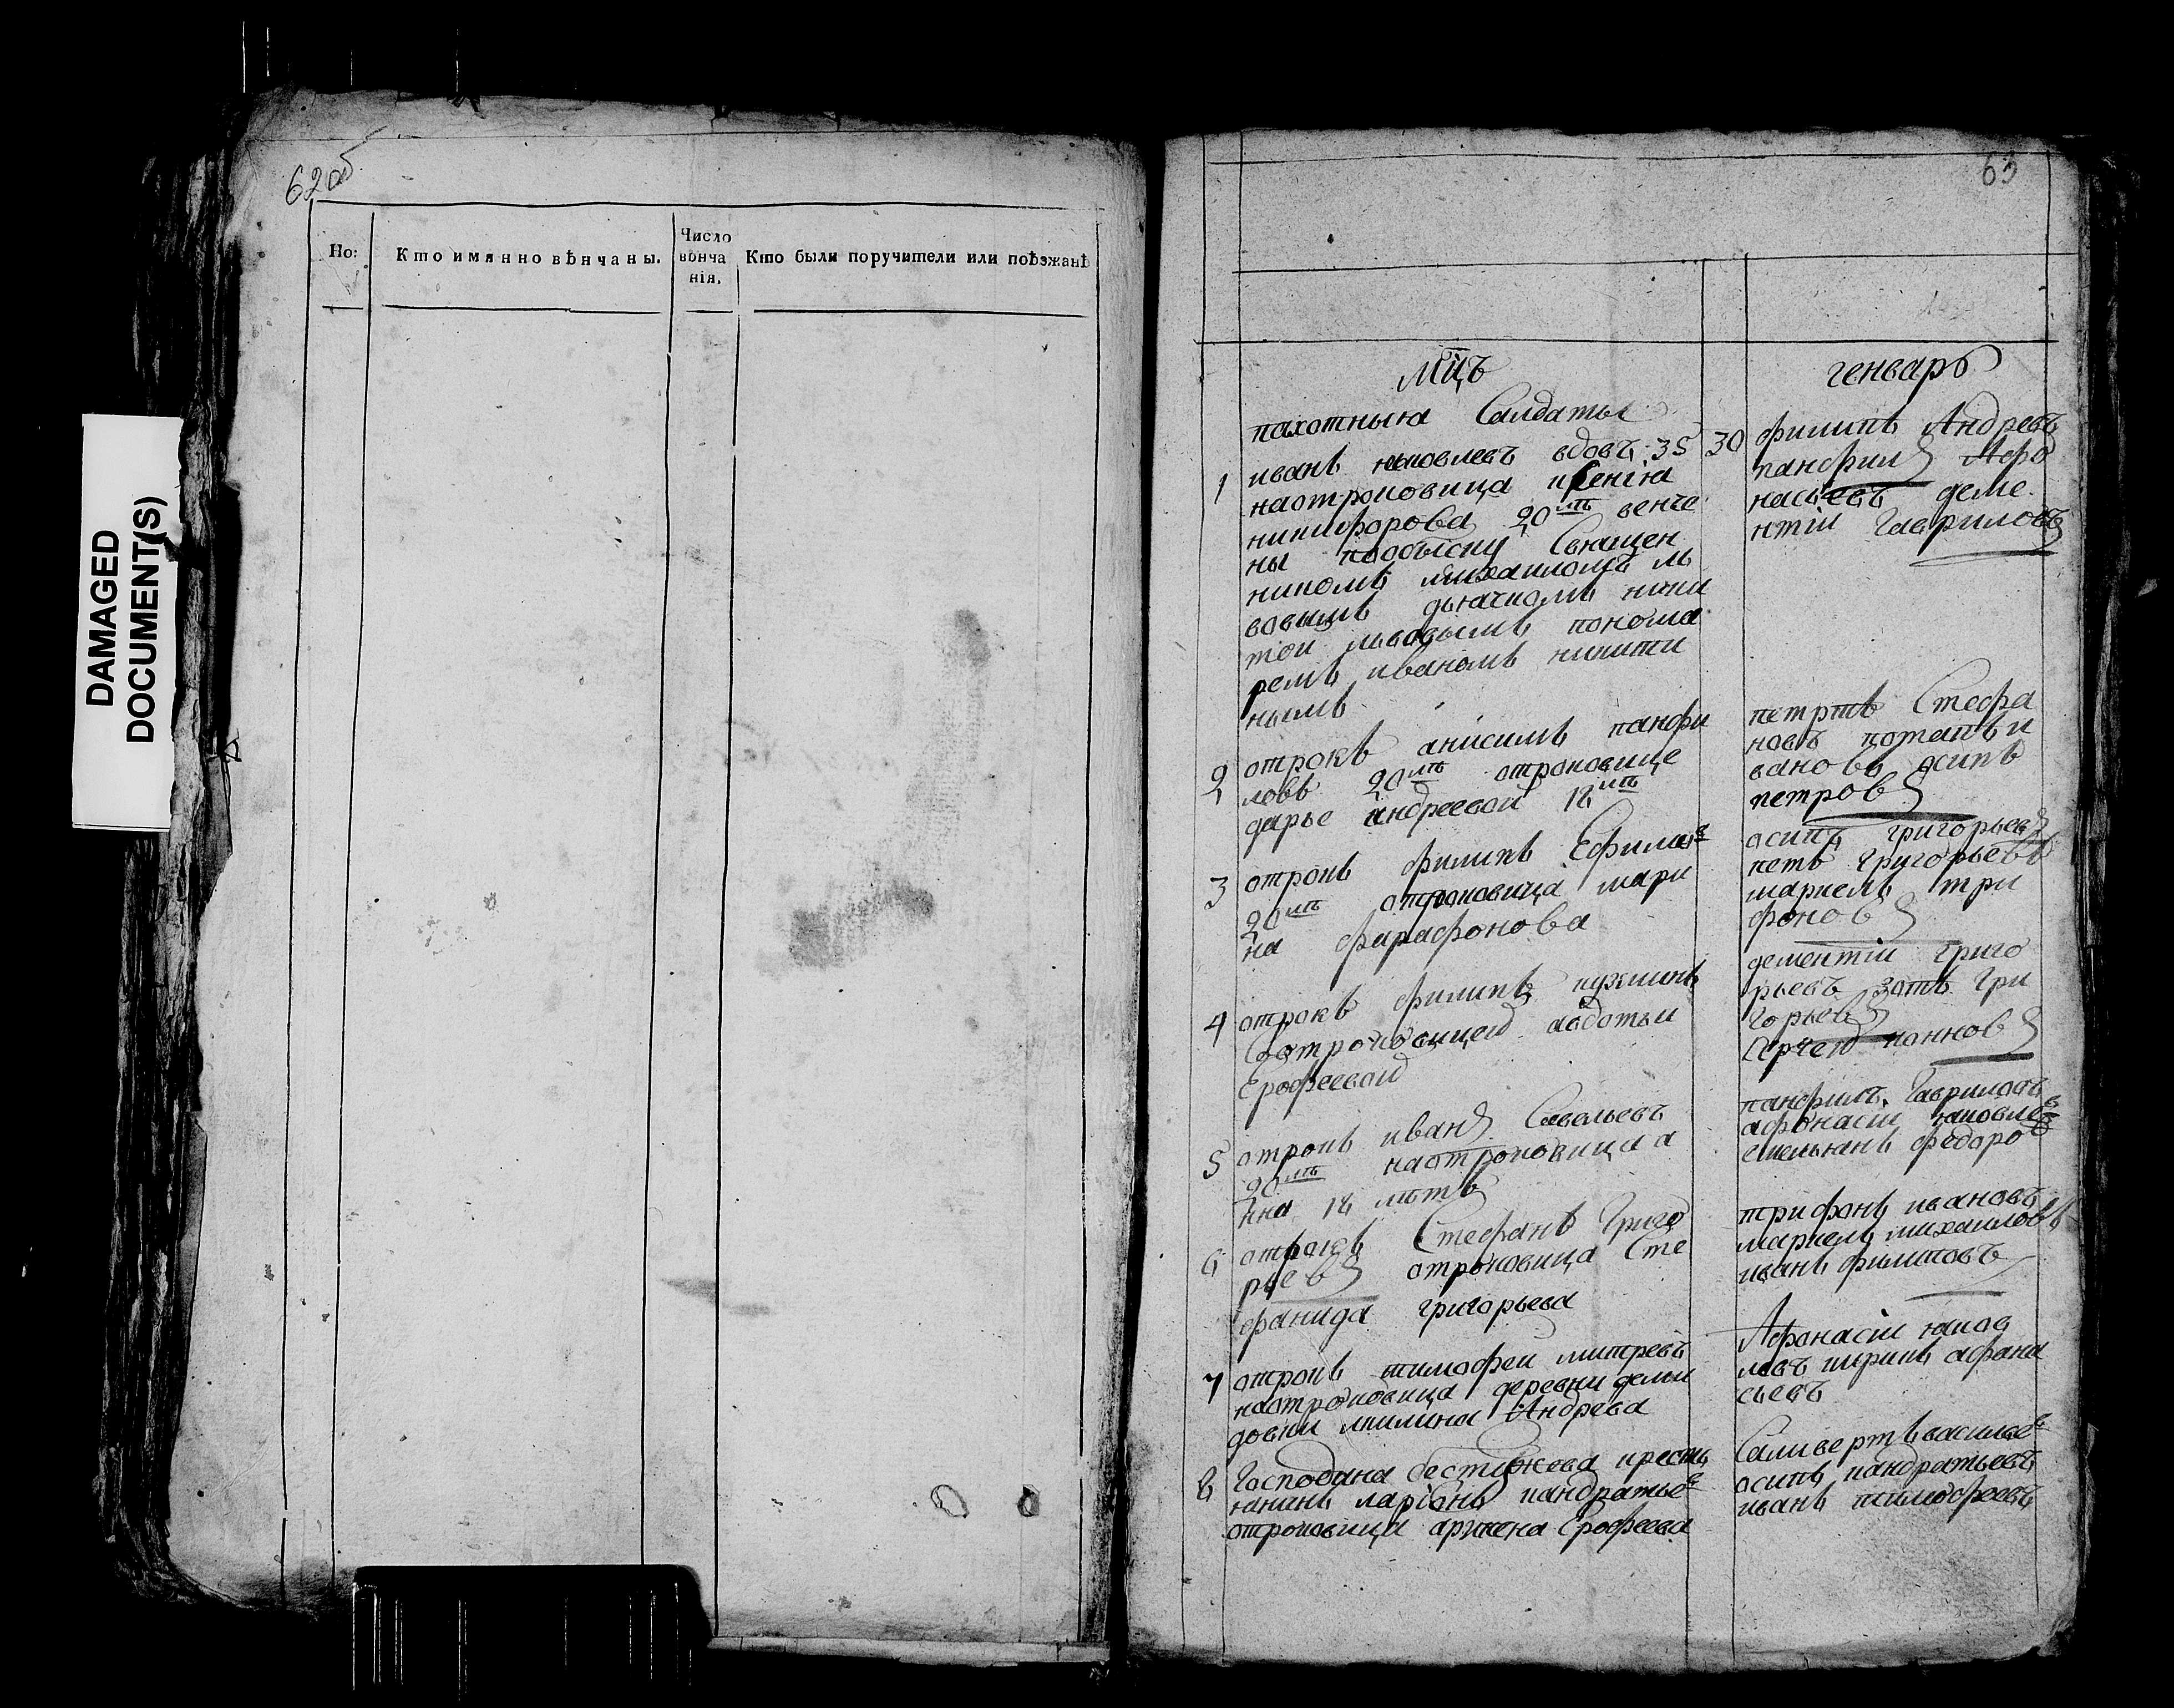 DAMAGED
DOCUMENT(S)
62 об
Но:
Кто имянно вѣнчаны.
Число
вѣнча
нія.
Кто были поручители или поѣзжанѣ
63
мцъ
генварь
пахотныя Салдаты
1
иванъ яковлевъ вдовъ 35
30
наотроковица ксенія
никифорова 20 лѣт венче
ны пообыску Священ
никомъ михаиломъ ль
вовымъ дьячкомъ ники
той львовымъ понома
ремъ иваномъ никити
нымъ
филипъ Андревъ
панфил Афо
насьевъ деме
нтіи Гавриловъ
2
отрокъ анисимъ панфи
ловъ 20 лѣт отроковице
дарье андреевой 18 лѣт
петръ Стефа
новъ потапъ и
вановъ осипъ
петровъ
3
отрокъ филипъ Ефимов
20 лѣт отроковица мари
на фарафонова
осипъ григорьев
петъ григорьевъ
маркелъ три
фоновъ
4
отрокъ филипъ кузминъ
Сотроковицей авдотьи
Ерофеевой
дементіи григо
рьевъ зотъ Гри
горьев
Сергей кононов
5
отрокъ иван Савельевъ
20 лѣт наотроковица а
нна 18 лѣтъ
панфилъ Гавриловъ
афонасіи яковлев
емельянъ федоро
6
отрокъ Стефанъ Григо
рьев отроковица Сте
фанида григорьева
трифонъ ивановъ
маркелъ михаиловъ
иванъ филиповъ
7
отрокъ тимофеи митревъ
наотроковица деревни деми
довки Андрева
Афонасіи яков
левъ афана
сьевъ
8
Господина бестужева кресть
янинъ ларіонъ кандратьев
отроковица Ерофеева
Саливертъ васильев
осипъ кандратьевъ
иванъ тимофеевъ